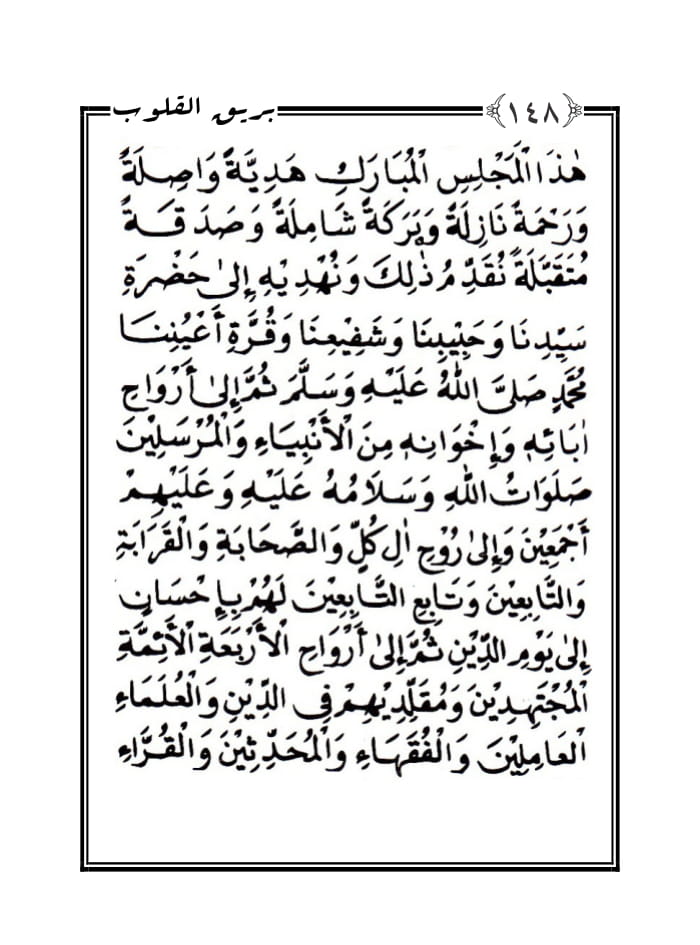 ﴿١٤٨﴾ بريق القلوب
هٰذَا الْمَجْلِسِ الْمُبَارَكِ هَدِيَّةً وَاصِلَةً
وَرَحْمَةً نَازِلَةً وَبَرَكَةً شَامِلَةً وَصَدَقَةً
مُتَقَبَّلَةً نُقَدِّمُ ذٰلِكَ وَنُهْدِيْهِ إِلىٰ حَضْرَةِ
سَيِّدِنَا وَحَبِيْبِنَا وَشَفِيْعِنَا وَقُرَّةِ أَعْيُنِنَا
مُحَمَّدٍ صَلىَّ اللّٰهُ عَلَيْهِ وَسَلَّمَ ثُمَّ إِلىٰ أَرْوَاحِ
اٰبَائِهٖ وَإِخْوَانِهٖ مِنَ الْأَنْبِيَاءِ وَالْمُرْسَلِيْنَ
صَلَوَاتُ اللّٰهِ وَسَلَامُهُ عَلَيْهِ وَعَلَيْهِمْ
أَجْمَعِيْنَ وَإِلىٰ رُوْحِ اٰلِ كُلٍّ وَالصَّحَابَةِ وَالْقَرَابَةِ
وَالتَّابِعِيْنَ وَتَابِعِ التَّابِعِيْنَ لَهُمْ بِإِحْسَانٍ
إِلىٰ يَوْمِ الدِّيْنِ ثُمَّ إِلىٰ أَرْوَاحِ الْأَرْبَعَةِ الْأَئِمَّةِ
الْمُجْتَهِدِيْنَ وَمُقَلِّدِيْهِمْ فِي الدِّيْنِ وَالْعُلَمَاءِ
الْعَامِلِيْنَ وَالْفُقَهَاءِ وَالْمُحَدِّثِيْنَ وَالْقُرَّاءِ